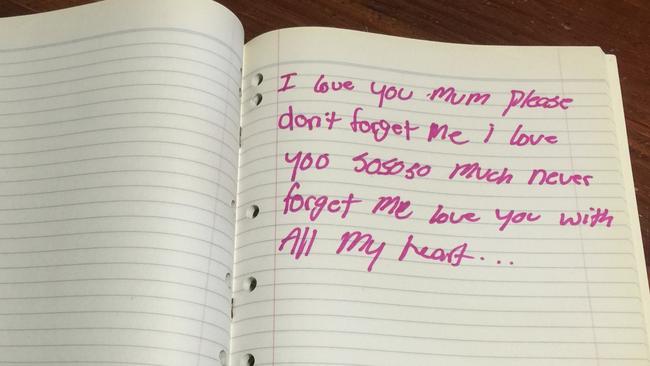 I love you mum please
don't forget me i love
yoo sososo much never
forget me love you with
All My heart...